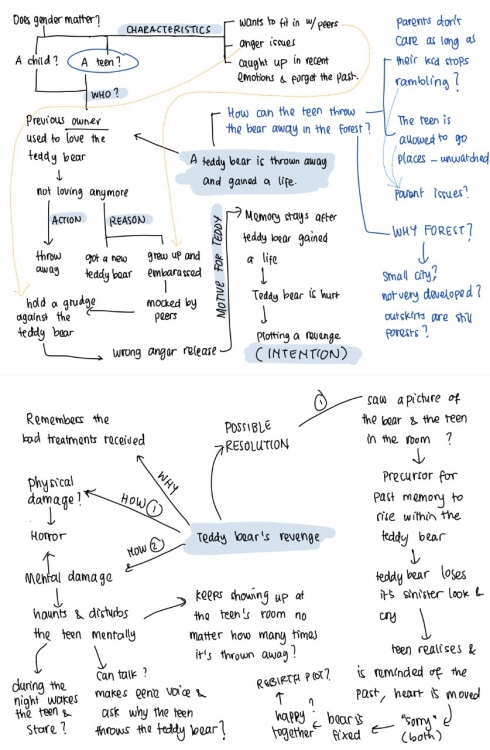 Does gender matter?
CHARACTERISTICS
wants to fit in w/peers
anger issues
caught up in recent
emotions & forget the past.
A child?
A teen?
WHO?
Previous owner
used to love the
teddy bear
not loving anymore
ACTION
REASON
throw
away
got a new
teddy bear
grew up and
embarassed
mocked by
peers
hold a grudge
against the
teddy bear
wrong anger release
A teddy bear is thrown away
and gained a life.
MOTIVE FOR TEDDY
Memory stays after
teddy bear gained
a life
Teddy bear is hurt
Plotting a revenge
(INTENTION)
How can the teen throw
the bear away in the forest?
Parents don't
care as long as
their kid stops
rambling?
The teen is
allowed to go
places - unwatched
Parent issues?
WHY FOREST?
Small city?
not very developed?
outskirts are still
forests?
Teddy bear's revenge
WHY
Remembers the
bad treatments received
HOW 1
physical
damage?
Horror
HOW 2
Mental damage
haunts & disturbs
the teen mentally
during the
night wakes
the teen &
stare?
can talk?
makes eerie voice &
ask why the teen
throws the teddy bear?
keeps showing up at
the teen's room no
matter how many times
it's thrown away?
POSSIBLE
RESOLUTION
1
saw a picture of
the bear & the teen
in the room ?
Precursor for
Past memory to
rise within the
teddy bear
teddy bear loses
its sinister look &
cry
teen realises &
is reminded of the
past, heart is moved
"sorry"
(both)
bear is
fixed
happy?
together
REBIRTH PLOT?